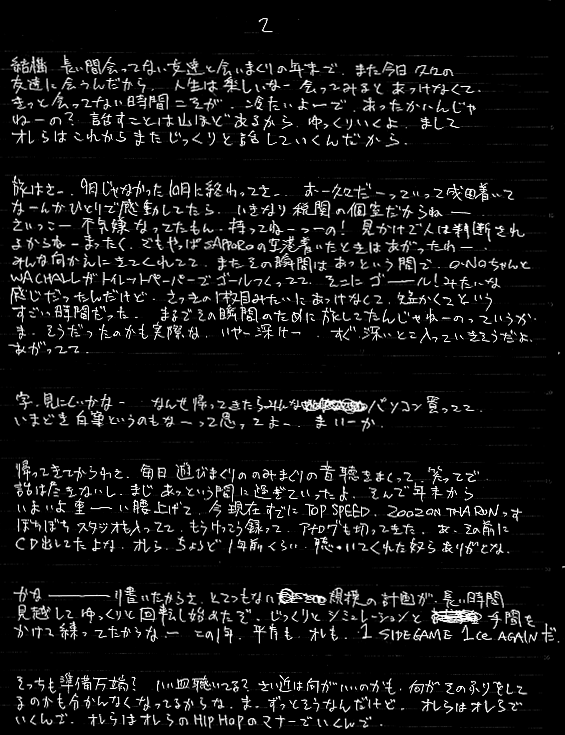 2
結構 長い間会ってない友達と会いまくりの年末で、また今日 久々の
友達に会うんだから、人生は楽しいなー 会ってみるとあっけなくて、
きっと会ってない時間こそが、冷たいよーで、あったかいんじゃ
ねーの? 話すことは山ほどあるから、ゆっくりいくよ、まして
オレらはこれからまたじっくりと話していくんだから。
旅はさー、9月じゃなかった10月に終わってさー、おー久々だーっていって成田着いて
なーんかひとりで感動してたら、いきなり税関の個室だからねー
さいっこー不気嫌なってたもん、持ってねーっつーの! 見かけで人は判断され
よからねーまったく、でもやっぱSAPPOROの空港着いたときはあがったわー、
みんな向かえにきてくれてて、またその瞬間はあっという間で、O-NOちゃんと
WACHALLがトイレットペーパーでゴールつくってて、そこにゴール!みたいな
感じだったんだけど、さっきの1枚目みたいにあっけなくて、短かくてという
すごい時間だった、まるでその瞬間のために旅してたんじゃねーのっていうか
ま、そうだったのかも実際な、いやー深けー、すぐ、深いとこ入っていきそうだよ、
あがってて、
字、見にくいかなー なんせ帰ってきたらみんな パソコン買ってて、
いまどき自筆というのもなーって思ってよー、まいーか、
帰ってきてからわさ、毎日 遊びまくりののみまくりの音聴きまくって、笑ってで
話は尽きないし、まじ あっという間に過ぎていったよ、そんで年末から
いよいよ重ーい腰上げて、今現在すでに TOP SPEED、2002 ON THA RUNっす
ぼちぼちスタジオも入ってて、もうけっこう録って、アナログも切ってきた、あ、その前に
CD出してたよな、オレら、ちょうど1年前くらい、聴いてくれた奴らありがとな、
かなーーーり置いたからさ、とてつもない 規模の計画が、長い時間
見越してゆっくりと回転し始めたぞ、じっくりとシミュレーションと 手間を
かけて練ってたからなー この1年、平育も オレも、1 SIDE GAME 1ce AGAIN だ、
そっちも準備万端? いい皿聴いてる? さい近は何がいいのかも、何がそのふりをして
るのかも分かんなくなってるからな、ま、ずっとそうなんだけど、オレはオレらで
いくんで、オレらはオレらのHIP HOPのマナーでいくんで、